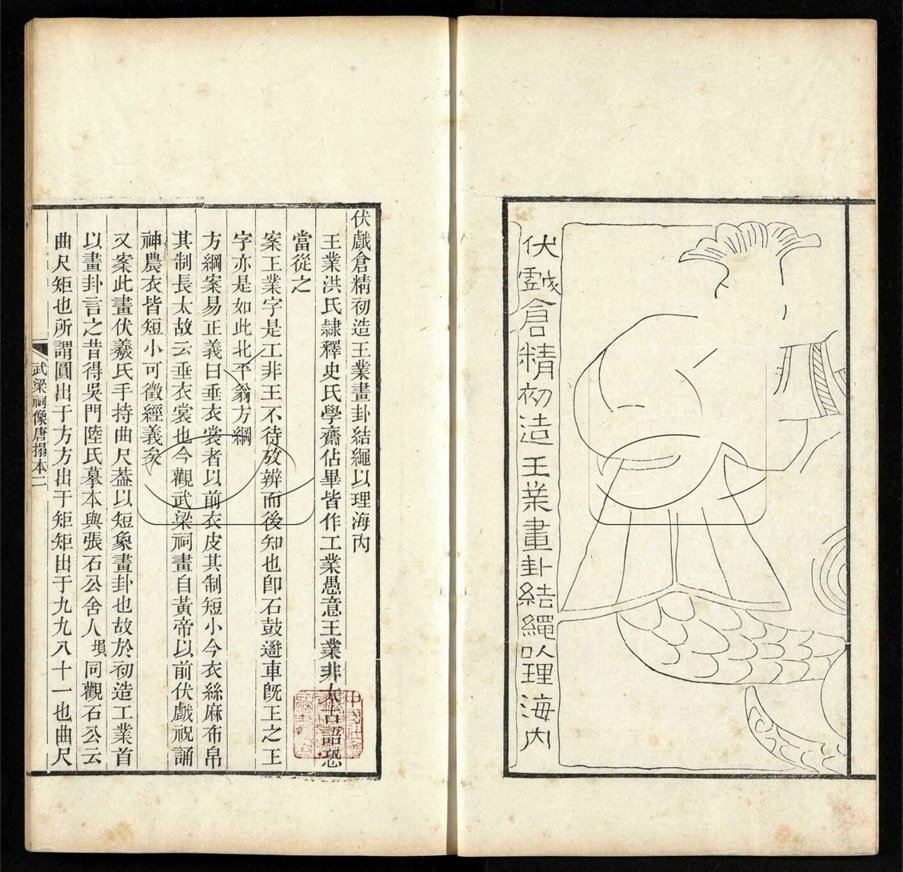 伏戲倉精初造王業畫卦結繩以理海內
伏戲倉精初造王業畫卦結繩以理海內
王業洪氏隷釋史氏學齋佔畢皆作工業愚意王業非太古語恐
當從之
案王業字是工非王不待攷辨而後知也卽石鼓遊車旣工之工
字亦是如此北平翁方綱
方綱案易正義曰垂衣裳者以前衣皮其制短小今衣絲麻布帛
其制長大故云垂衣裳也今觀武梁祠畫自黃帝以前伏戲祝誦
神農衣皆短小可徵經義矣
又案此畫伏羲氏手持曲尺葢以短象畫卦也故於初造工業首
以畫卦言之昔得吳門陸氏摹本與張石公舍人塤同觀石公云
曲尺矩也所謂圓出于方方出于矩矩出于九九八十一也曲尺
武梁祠像唐搨本二